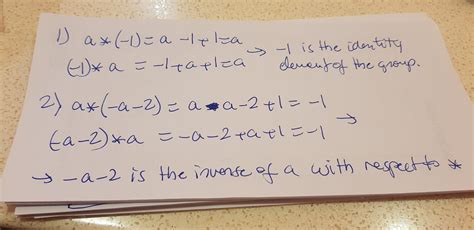 1) a*(-1) = a -1+1=a
(-1)*a = -1+a+1=a → -1 is the identity element of the group.
2) a*(-a-2) = a-a-2+1=-1
(-a-2)*a = -a-2+a+1=-1 →
→ -a-2 is the inverse of a with respect to *